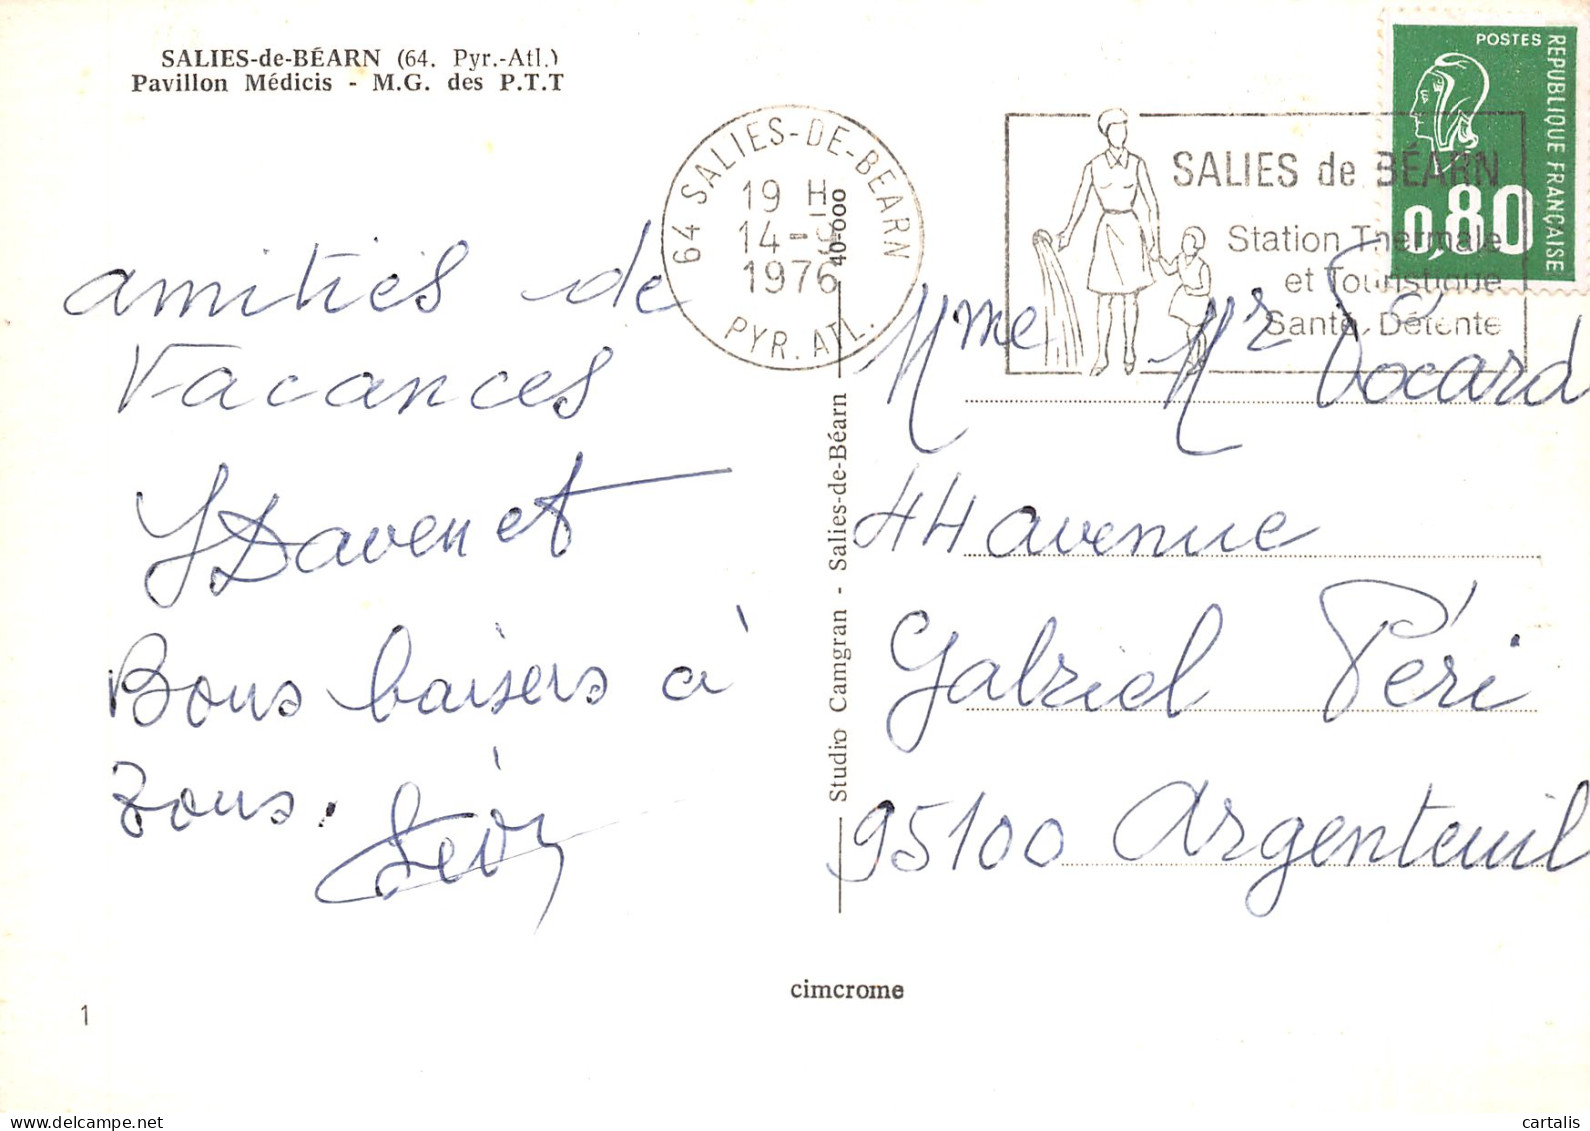 SALIES-de-BÉARN (64. Pyr.-Atl.)
Pavillon Médicis - M.G. des P.T.T
64 SALIES-DE-BEARN
19 H
14-
1976
PYR. ATL.
SALIES de BÉARN
Station Thermale
et Touristique
Santé, Détente
POSTES
REPUBLIQUE FRANÇAISE
0,80
amitiés de
Vacances
Y Davenet
Bons baisers à
Tous.
Studio Camgran - Salies-de-Béarn
40-000
Mme Mr Pocard
44 avenue
Gabriel Péri
95100 Argenteuil
cimcrome
1
cartalis